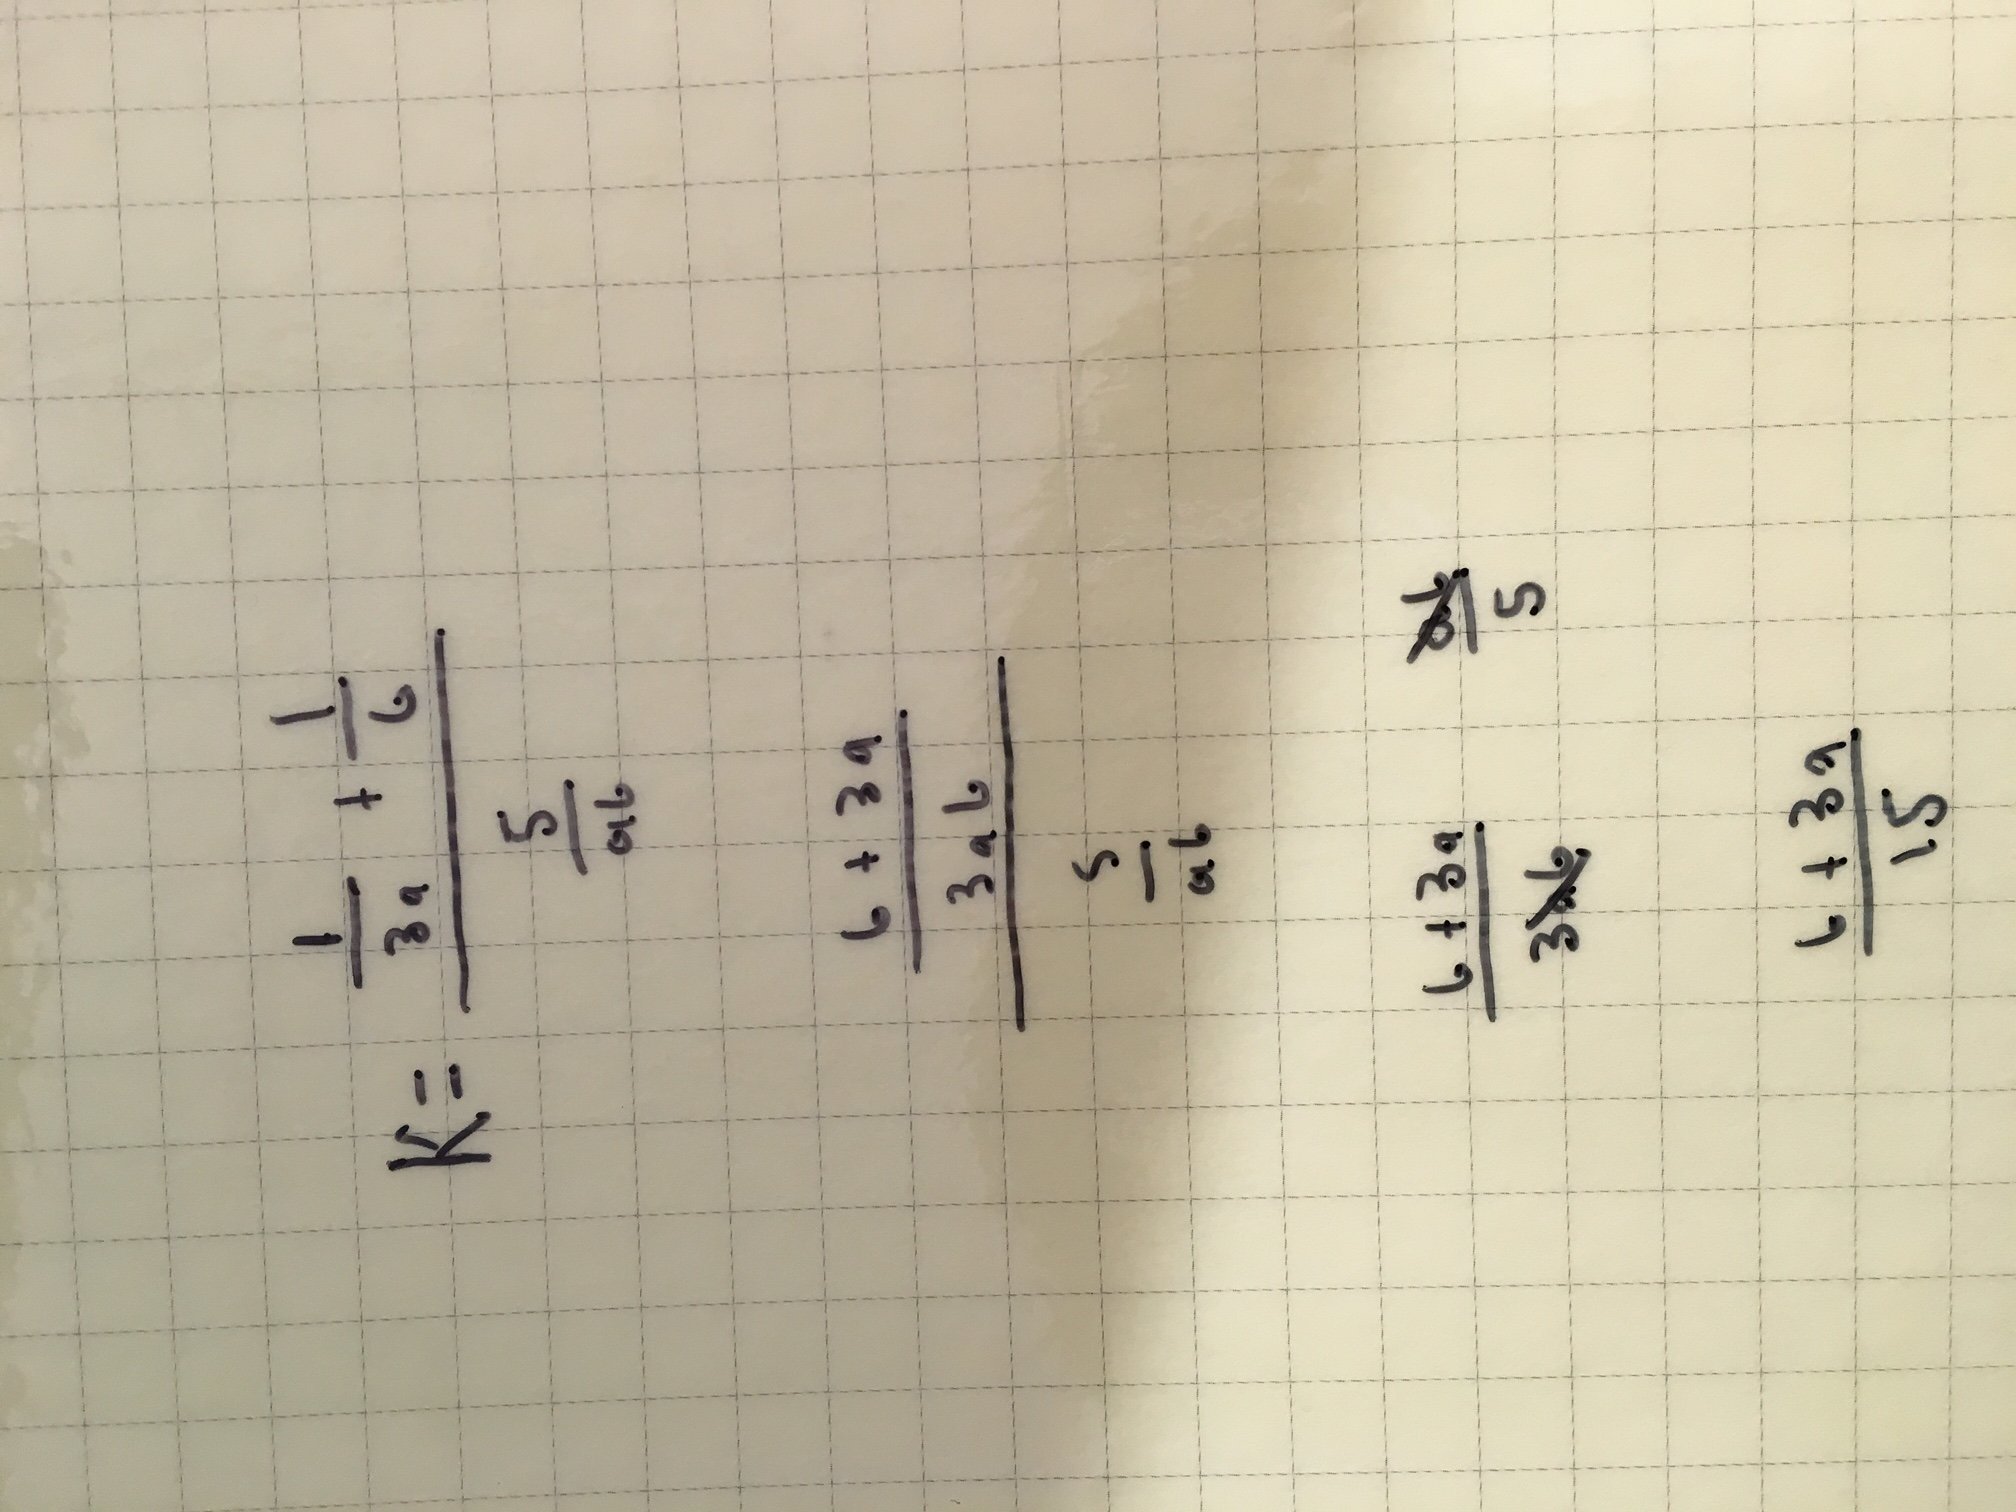 K = (1/3a + 1/b) / (5/ab)
((b + 3a)/3ab) / (5/ab)
(b + 3a)/3ab ab/5
(b + 3a)/15